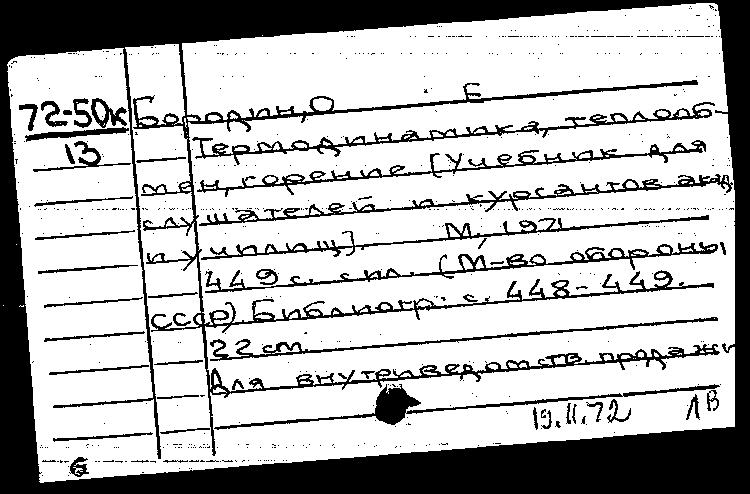 72-50к Бородин, О Е
13 Термодинамика, теплооб-
мен, горение. [Учебник для
слушателей и курсантов акад.
и училищ]. М., 1971.
449 с. с ил. (М-во обороны
СССР) Библиогр: с. 448-449.
22 см.
Для внутриведомств. продажи
19.II.72 ЛВ
6